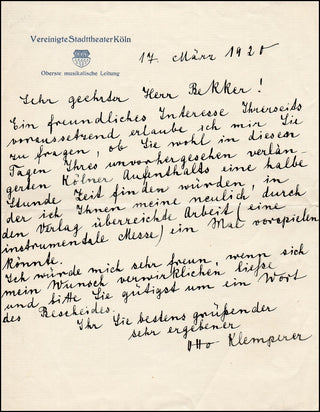 Vereinigte Stadttheater Köln
Oberste musikalische Leitung
17. März 1920
Sehr geehrter Herr Bekker!
Ein freundliches Interesse Ihrerseits
voraussetzend erlaube ich mir Sie
zu fragen, ob Sie wohl in diesen
Tagen Ihres unvorhergesehen verlän-
gerten Kölner Aufenthalts eine halbe
Stunde Zeit finden würden, in
der ich Ihnen meine neulich durch
den Verlag überreichte Arbeit (eine
instrumentale Messe) ein Mal vorspielen
könnte.
Ich würde mich sehr freun, wenn sich
mein Wunsch verwirklichen ließe
und bitte Sie gütigst um ein Wort
des Bescheides.
Ihr Sie bestens grüßender
sehr ergebener
Otto Klemperer